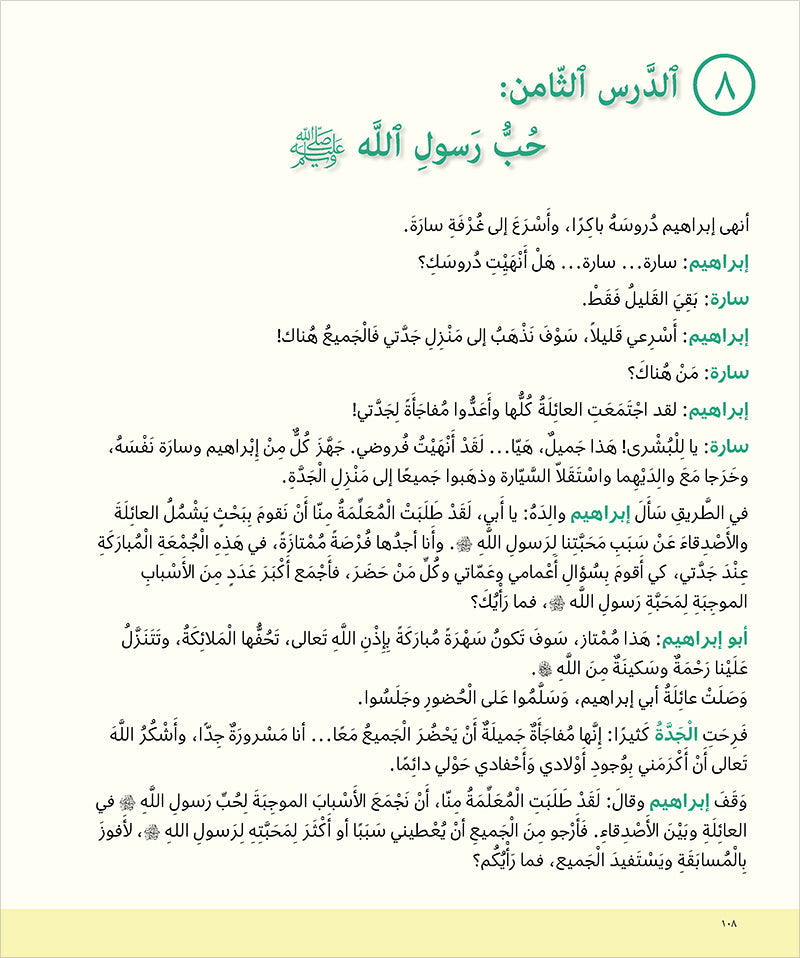 ٨ ٱلدَّرس ٱلثّامن:
حُبُّ رَسولِ ٱللَّه ﷺ
أنهى إبراهيم دُروسَهُ باكِرًا، وأَسْرَعَ إلى غُرْفَةِ سارَةَ.
إبراهيم: سارة... سارة... هَلْ أَنْهَيْتِ دُروسَكِ؟
سارة: بَقِيَ القَليلُ فَقَطْ.
إبراهيم: أَسْرِعي قَليلاً، سَوْفَ نَذْهَبُ إلى مَنْزِلِ جَدَّتي فَالْجَميعُ هُناك!
سارة: مَنْ هُناكَ؟
إبراهيم: لقد اجْتَمَعَتِ العائِلَةُ كُلُّها وأَعَدُّوا مُفاجَأَةً لِجَدَّتي!
سارة: يا لِلْبُشْرى! هَذا جَميلٌ، هَيّا... لَقَدْ أَنْهَيْتُ فُروضي. جَهَّزَ كُلٌّ مِنْ إِبْراهيم وسارَة نَفْسَهُ،
وخَرَجا مَعَ والِدَيْهِما واسْتَقَلاّ السَّيّارة وذهَبوا جَميعًا إلى مَنْزِلِ الْجَدَّةِ.
في الطَّريقِ سَأَلَ إبراهيم والِدَهُ: يا أَبي، لَقَدْ طَلَبَتْ الْمُعَلِّمَةُ مِنّا أَنْ نَقومَ بِبَحْثٍ يَشْمُلُ العائِلَةَ
والأَصْدِقاءَ عَنْ سَبَبِ مَحَبَّتِنا لِرَسولِ اللَّهِ ﷺ. وأَنا أجدُها فُرْصَةً مُمْتازَةً، في هَذِهِ الْجُمْعَةِ الْمُبارَكَةِ
عِنْدَ جَدَّتي، كي أَقومَ بِسُؤالِ أَعْمامي وعَمّاتي وكُلِّ مَنْ حَضَرَ، فأَجْمَع أَكْبَرَ عَدَدٍ مِنَ الأَسْبابِ
الموجِبَةِ لِمَحَبَّةِ رَسولِ اللَّه ﷺ، فما رَأْيُكَ؟
أبو إبراهيم: هَذا مُمْتاز، سَوفَ تَكونُ سَهْرَةً مُبارَكَةً بِإِذْنِ اللَّهِ تَعالى، تَحُفُّها الْمَلائِكَةُ، وتَتَنَزَّلُ
عَلَيْنا رَحْمَةٌ وسَكينَةٌ مِنَ اللَّهِ.
وَصَلَتْ عائِلَةُ أبي إبراهيم، وَسَلَّمُوا عَلى الْحُضورِ وجَلَسُوا.
فَرِحَتِ الْجَدَّةُ كَثيرًا: إِنَّها مُفاجَأَةٌ جَميلَةٌ أَنْ يَحْضُرَ الْجَميعُ مَعًا... أنا مَسْرورَةٌ جِدّا، وأَشْكُرُ اللَّهَ
تَعالى أَنْ أَكْرَمَني بِوُجودِ أَوْلادي وَأَحْفادي حَوْلي دائِمًا.
وَقَفَ إبراهيم وقالَ: لَقَدْ طَلَبَتِ الْمُعَلِّمَةُ مِنّا، أَنْ نَجْمَعَ الأَسْبابَ الموجِبَةَ لِحُبِّ رَسولِ اللَّهِ ﷺ في
العائِلَةِ وبَيْنَ الأَصْدِقاءِ. فَأَرْجو مِنَ الْجَميعِ أنْ يُعْطيني سَبَبًا أو أَكْثَرَ لِمَحَبَّتِهِ لِرَسولِ اللهِ ﷺ، لأَفوزَ
بِالْمُسابَقَةِ ويَسْتَفيدَ الْجَميع، فما رَأْيُكُم؟
١٠٨